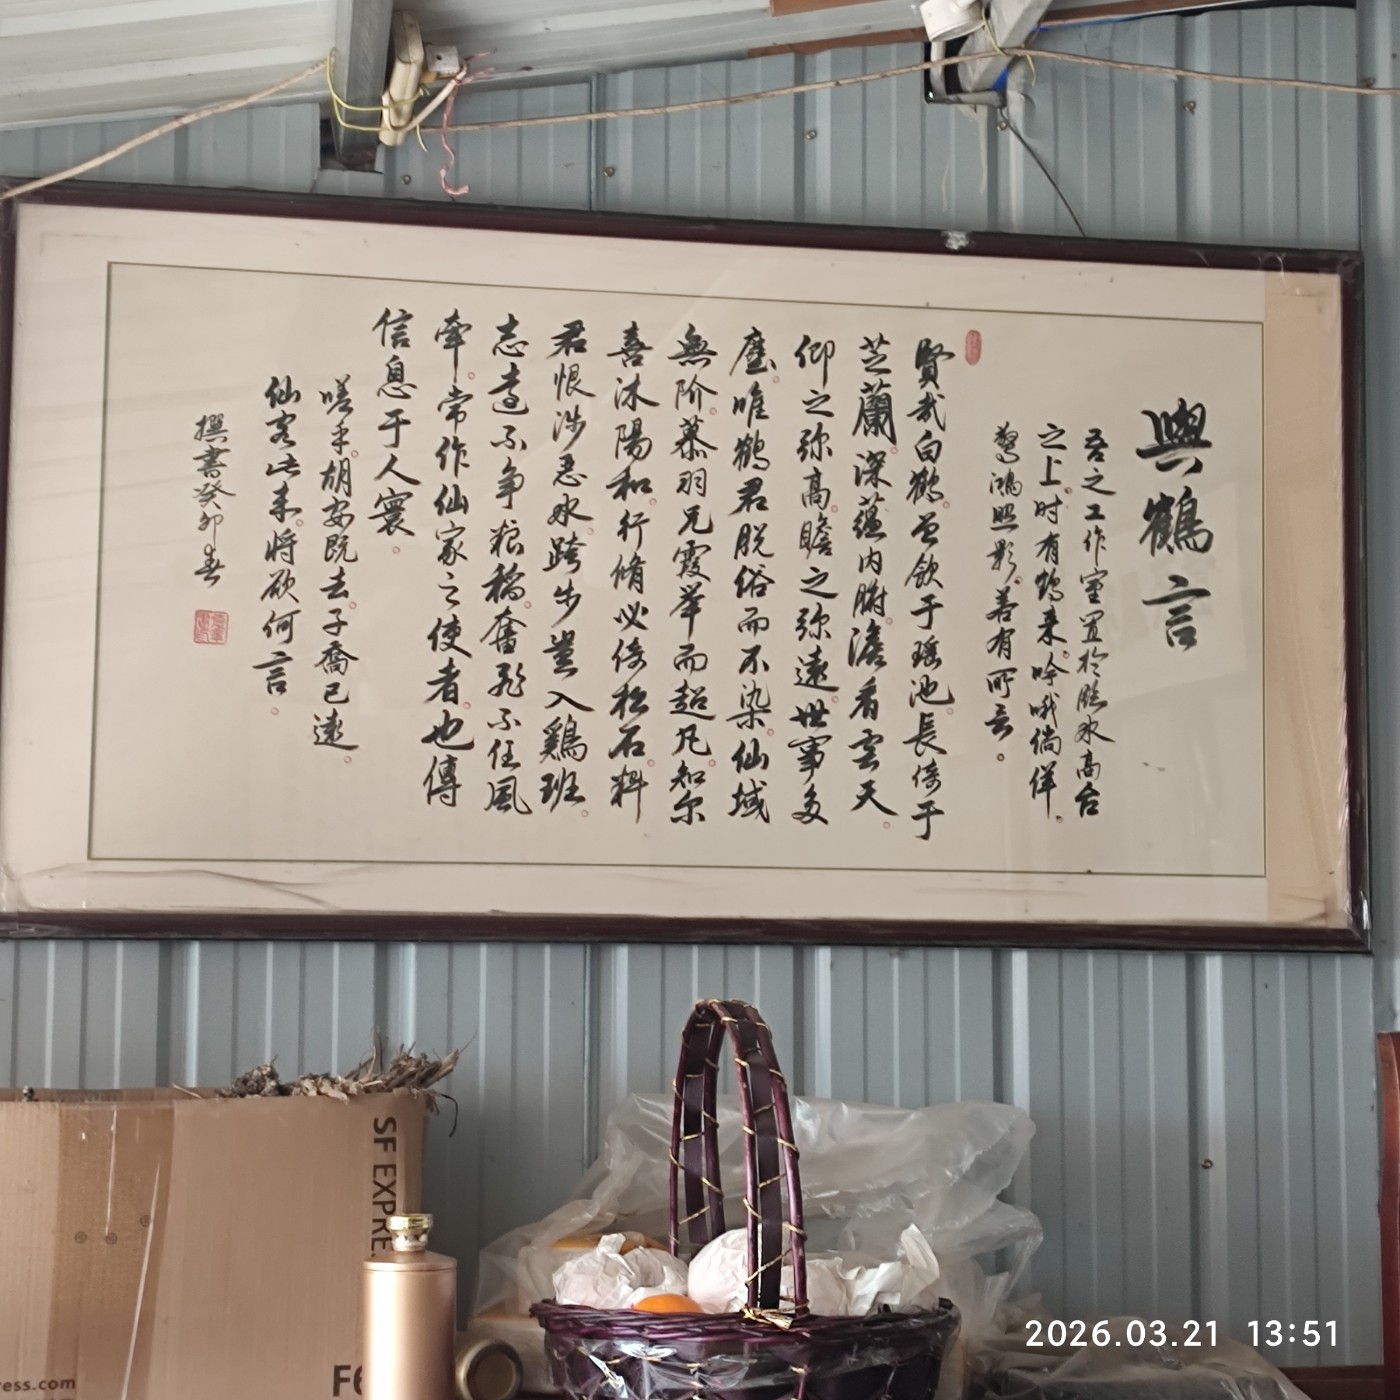 與鶴言
吾之工作室置於臨水高台
之上时有鹤来吟哦徜徉
驚鴻照影若有所言
賢哉白鶴曾飲于瑶池長倚于
芝蘭深蕴内腑澹看雲天
仰之弥高瞻之弥遠世事多
塵唯鶴君脱俗而不染仙域
無阶慕羽兄霞举而超凡知尔
喜沐陽和行脩必倚松石料
君恨涉惡水跨步豈入鷄班
志遠不争粮稿奮飛不任風
牽常作仙家之使者也傳
信息于人寰
嗟乎胡安既去子喬已遠
仙客此来將欲何言
撰書癸卯春
SF EXPRE
ress.com
F6
2026.03.21 13:51